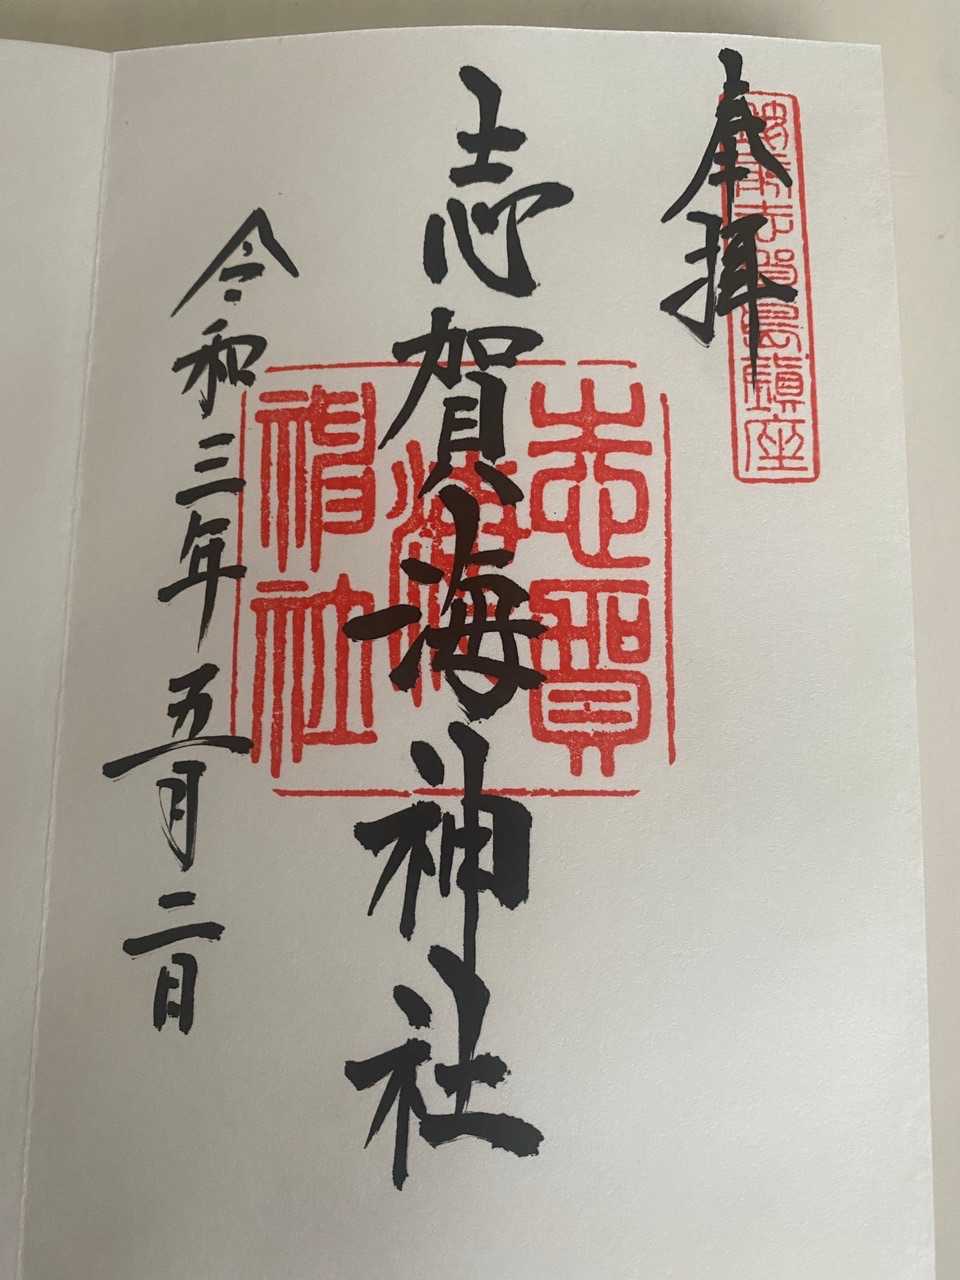 奉拝
筑前志賀島鎮座
志賀海神社
志賀海神社
令和三年五月二日